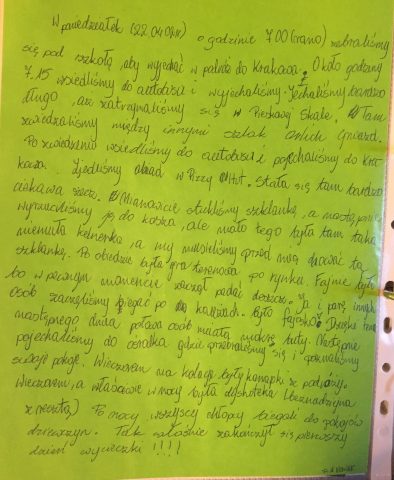 W poniedziałek (22.04.08r.) o godzinie 7.00 (rano) zebraliśmy
się pod szkołą, aby wyjechać w podróż do Krakowa. Około godziny
7.15 wsiedliśmy do autobusu i wyjechaliśmy. Jechaliśmy bardzo
długo, aż zatrzymaliśmy się w Pieskowej Skale. Tam
zwiedzaliśmy między innymi szlak Orlich Gniazd.
Po zwiedzaniu wsiedliśmy do autobusu i pojechaliśmy do Kra
kowa. Zjedliśmy obiad w Pizzy Hut. Stała się tam bardzo
ciekawa rzecz. Mianowicie stłukliśmy szklankę, a następnie
wyrzuciliśmy ją do kosza, ale mało tego była tam taka
niemiła kelnerka, a my musieliśmy przed nią chować tą
szklankę. Po obiedzie była gra terenowa po rynku. Fajnie było
bo w pewnym momencie zaczął padać deszcz. Ja i parę innych
osób zaczęliśmy biegać po kałużach. Było fajosko. Dzięki temu
następnego dnia połowa osób miała mokre buty. Następnie
pojechaliśmy do ośrodka gdzie przebraliśmy się i poznaliśmy
swoje pokoje. Wieczorem na kolację były kanapki z podróży.
Wieczorem, a właściwie w nocy była dyskoteka (beznadziejna
zresztą.) Po nocy wszyscy chłopcy biegali do pokojów
dziewczyn. Tak właśnie zakończył się pierwszy
dzień wycieczki !!!!